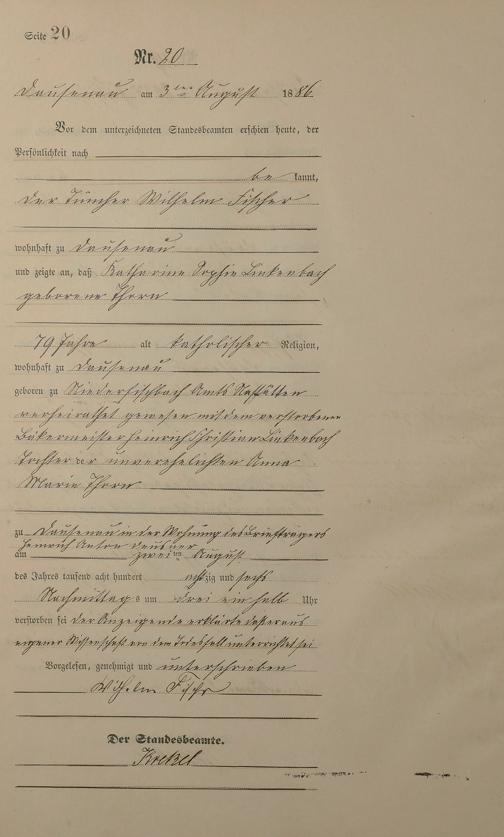 Seite 20
Nr. 20
Dausenau am 3ten August 1886
Vor dem unterzeichneten Standesbeamten erschien heute, der
Persönlichkeit nach
be kannt,
der Tüncher Wilhelm Fischer
wohnhaft zu Dausenau
und zeigte an, daß Katharine Sophie Linkenbach
geborene Thorn
79 Jahre alt katholischer Religion,
wohnhaft zu Dausenau
geboren zu Niederfischbach Amts Nastätten
verheirathet gewesen mit dem verstorbenen
Bäkermeister Heinrich Christian Linkenbach
Tochter der unverehelichten Anna
Marie Thorn
zu Dausenau in der Wohnung des Briefträgers
Heinrich Anton
am zweiten August
des Jahres tausend acht hundert achtzig und sechs
Nachmittags um drei ein halb Uhr
verstorben sei der Anzeigende erklärte daß er aus
eigener Wissenschaft von dem Todesfall unterrichtet sei
Vorgelesen, genehmigt und unterschrieben
Wilhelm Fischer
Der Standesbeamte.
Krekel